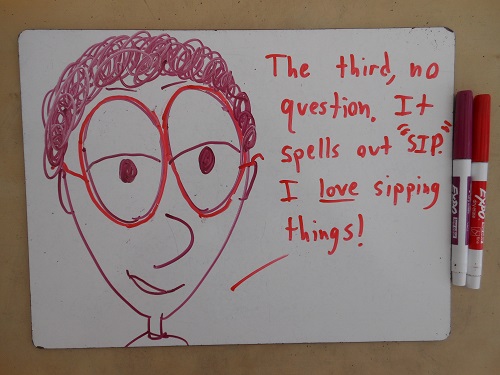 The third, no
question. It
spells out "SIP."
I love sipping
things!
EXPO
EXPO